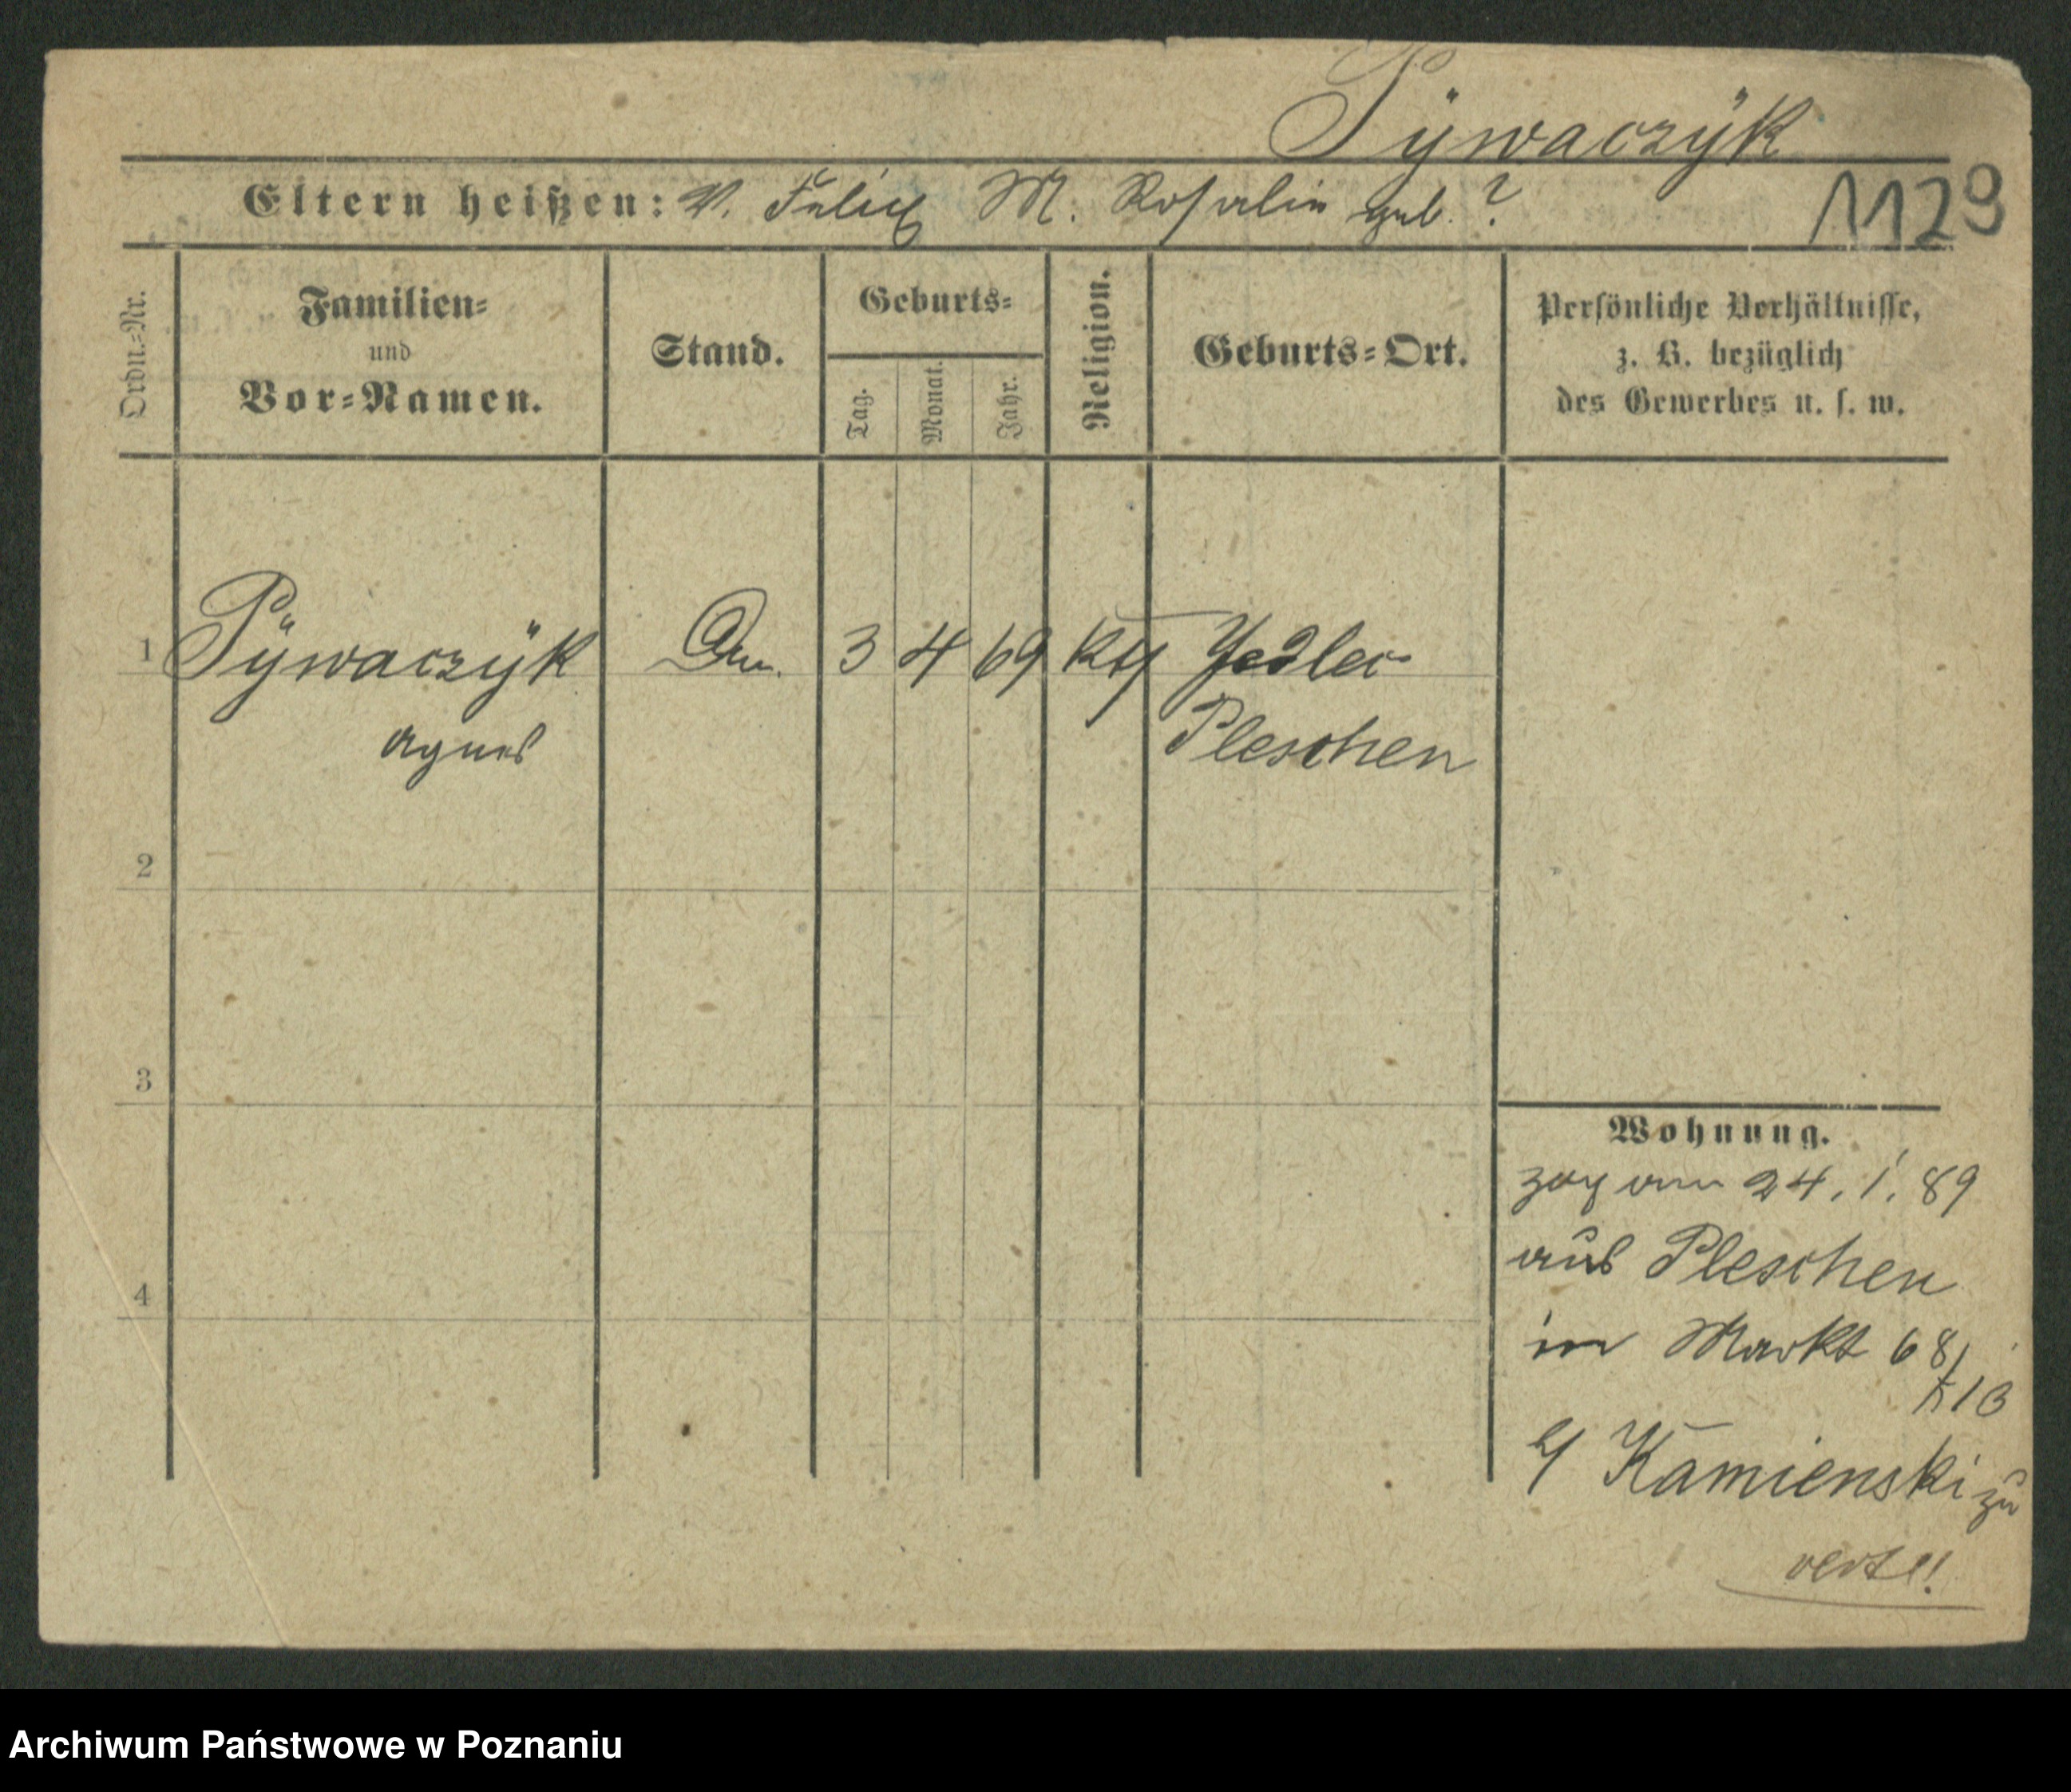 Pÿwaczÿk
Eltern heißen: V. Felix M. Rosalie geb. ?
1129
Ordn.-Nr.
Familien-
und
Vor-Namen.
Stand.
Geburts-
Tag.
Monat.
Jahr.
Religion.
Geburts-Ort.
Persönliche Verhältnisse,
z. B. bezüglich
des Gewerbes u. s. w.
1 Pÿwaczÿk 3 4 69 kth Jedlec
Agnes Pleschen
2
3
4
Wohnung.
zog am 24. 1. 89
aus Pleschen
in Markt 68/
b/ Kamienski zu
verte!
Archiwum Państwowe w Poznaniu